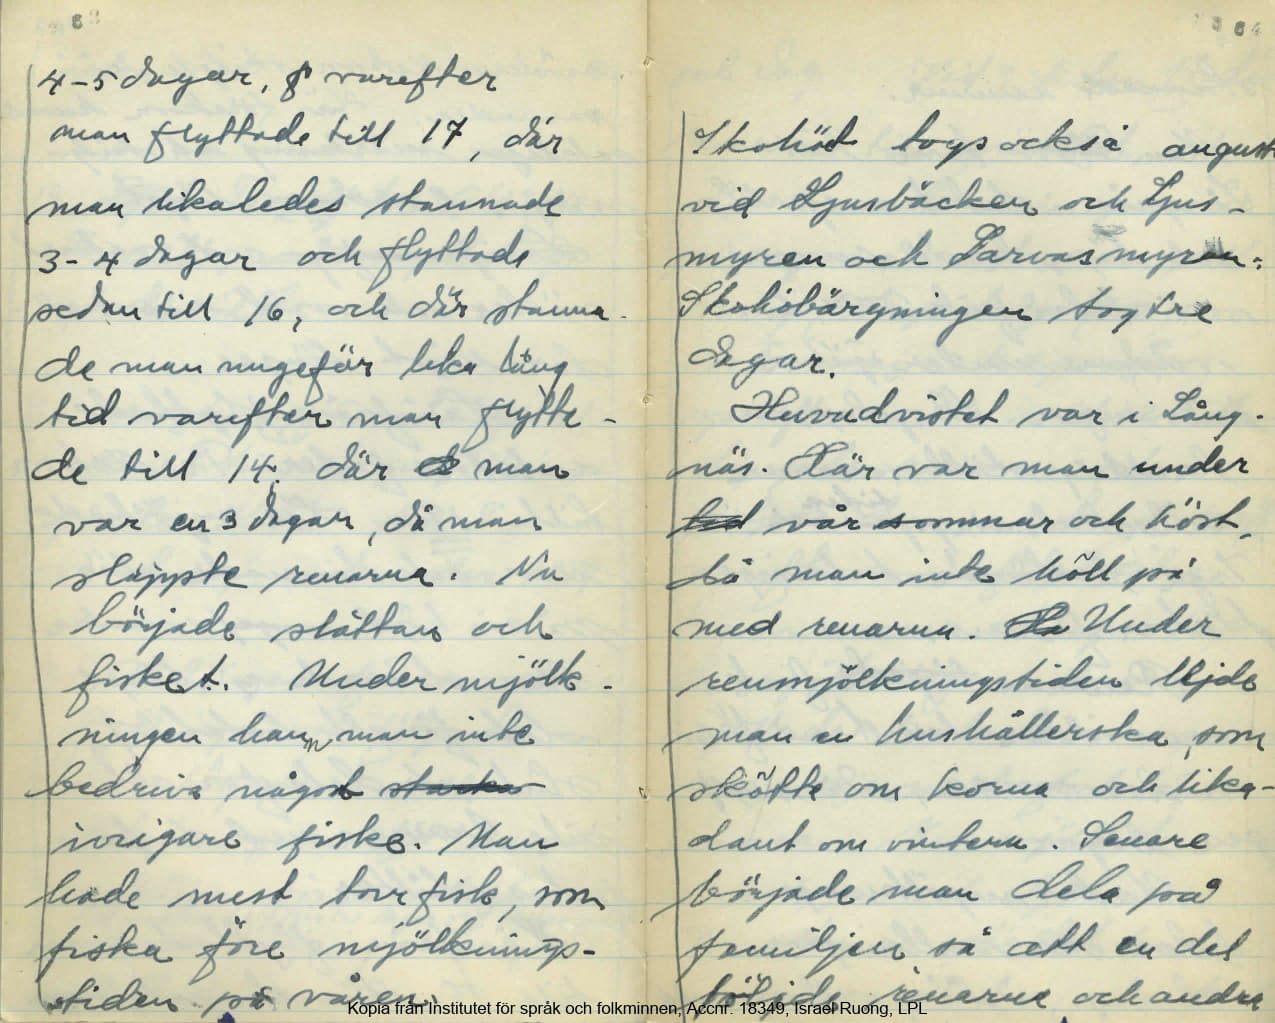 63
4-5 dagar, varefter
man flyttade till 17, där
man likaledes stannade
3-4 dagar och flyttade
sedan till 16, och där stanna-
de man ungefär lika lång
tid varefter man flytta-
de till 14. där man
var en 3 dagar, då man
släppte renarna. Nu
började slåttan och
fisket. Under mjölk-
ningen hann man inte
bedriva något starka
ivrigare fiske. Man
hade mest torrfisk, som
fiska före mjölknings-
tiden på våren.
64
Skohöet togs också august
vid Ljusbäcken och Ljus-
myren och Sarvasmyran.
Skohöbärgningen tog tre
dagar.
Huvudvistet var i Lång-
näs. Där var man under
vår sommar och höst,
då man inte höll på
med renarna. Under
renmjölkningstiden lejde
man en hushållerska, som
skötte om korna och lika-
dant om vintern. Senare
började man dela på
familjen så att en del
följde renarna och andra
Kopia från Institutet för språk och folkminnen, Accnr: 18349, Israel Ruong, LPL